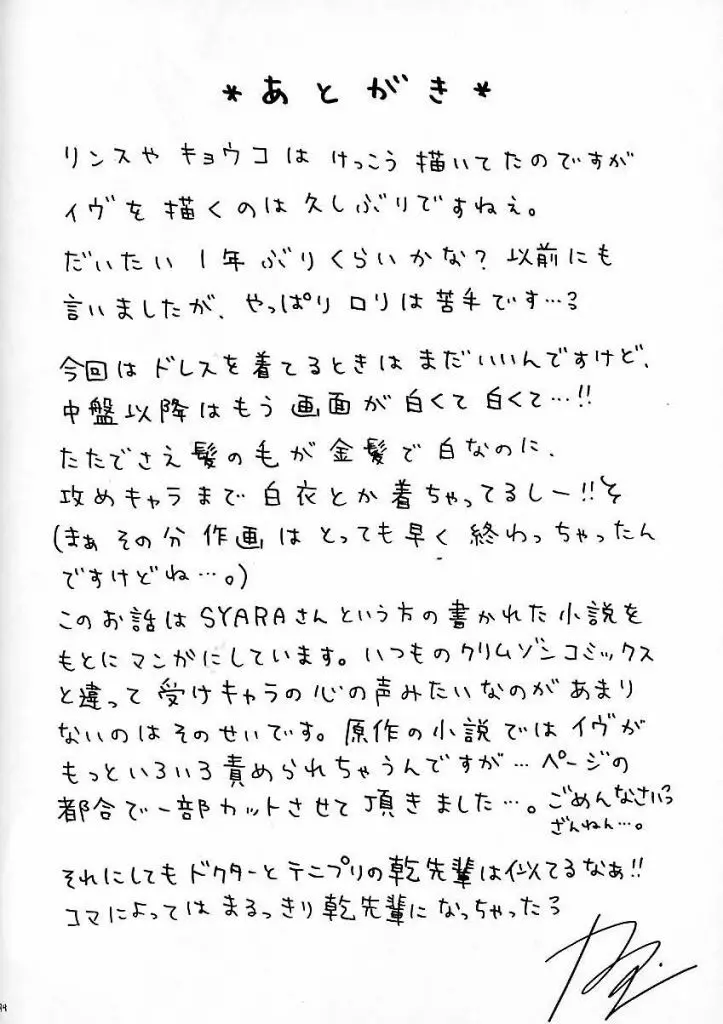 *あとがき*
リンスや キョウコは けっこう 描いてたのですが
イヴを 描くのは 久しぶりですねぇ。
だいたい 1年ぶりくらいかな？ 以前にも
言いましたが、やっぱり ロリは苦手です…ろ
今回は ドレスを着てるときは まだいいんですけど、
中盤以降はもう 画面が 白くて 白くて…!!
たたでさえ 髪の毛が 金髪で 白なのに、
攻めキャラまで 白衣とか 着ちゃってるしー!!
(まぁ その分 作画は とっても早く 終わっちゃったん
ですけどね…。)
このお話は SYARAさんという方の書かれた小説を
もとにマンガにしています。いつものクリムゾンコミックス
と違って 受けキャラの心の声みたいなのがあまり
ないのは そのせいです。原作の小説では イヴが
もっといろいろ責められちゃうんですが… ページの
都合で一部カットさせて 頂きました…。ごめんなさいっ
ざんねん…。
それにしても ドクターと テニプリの乾先輩は似てるなぁ!!
コマによっては まるっきり 乾先輩に なっちゃったろ
94